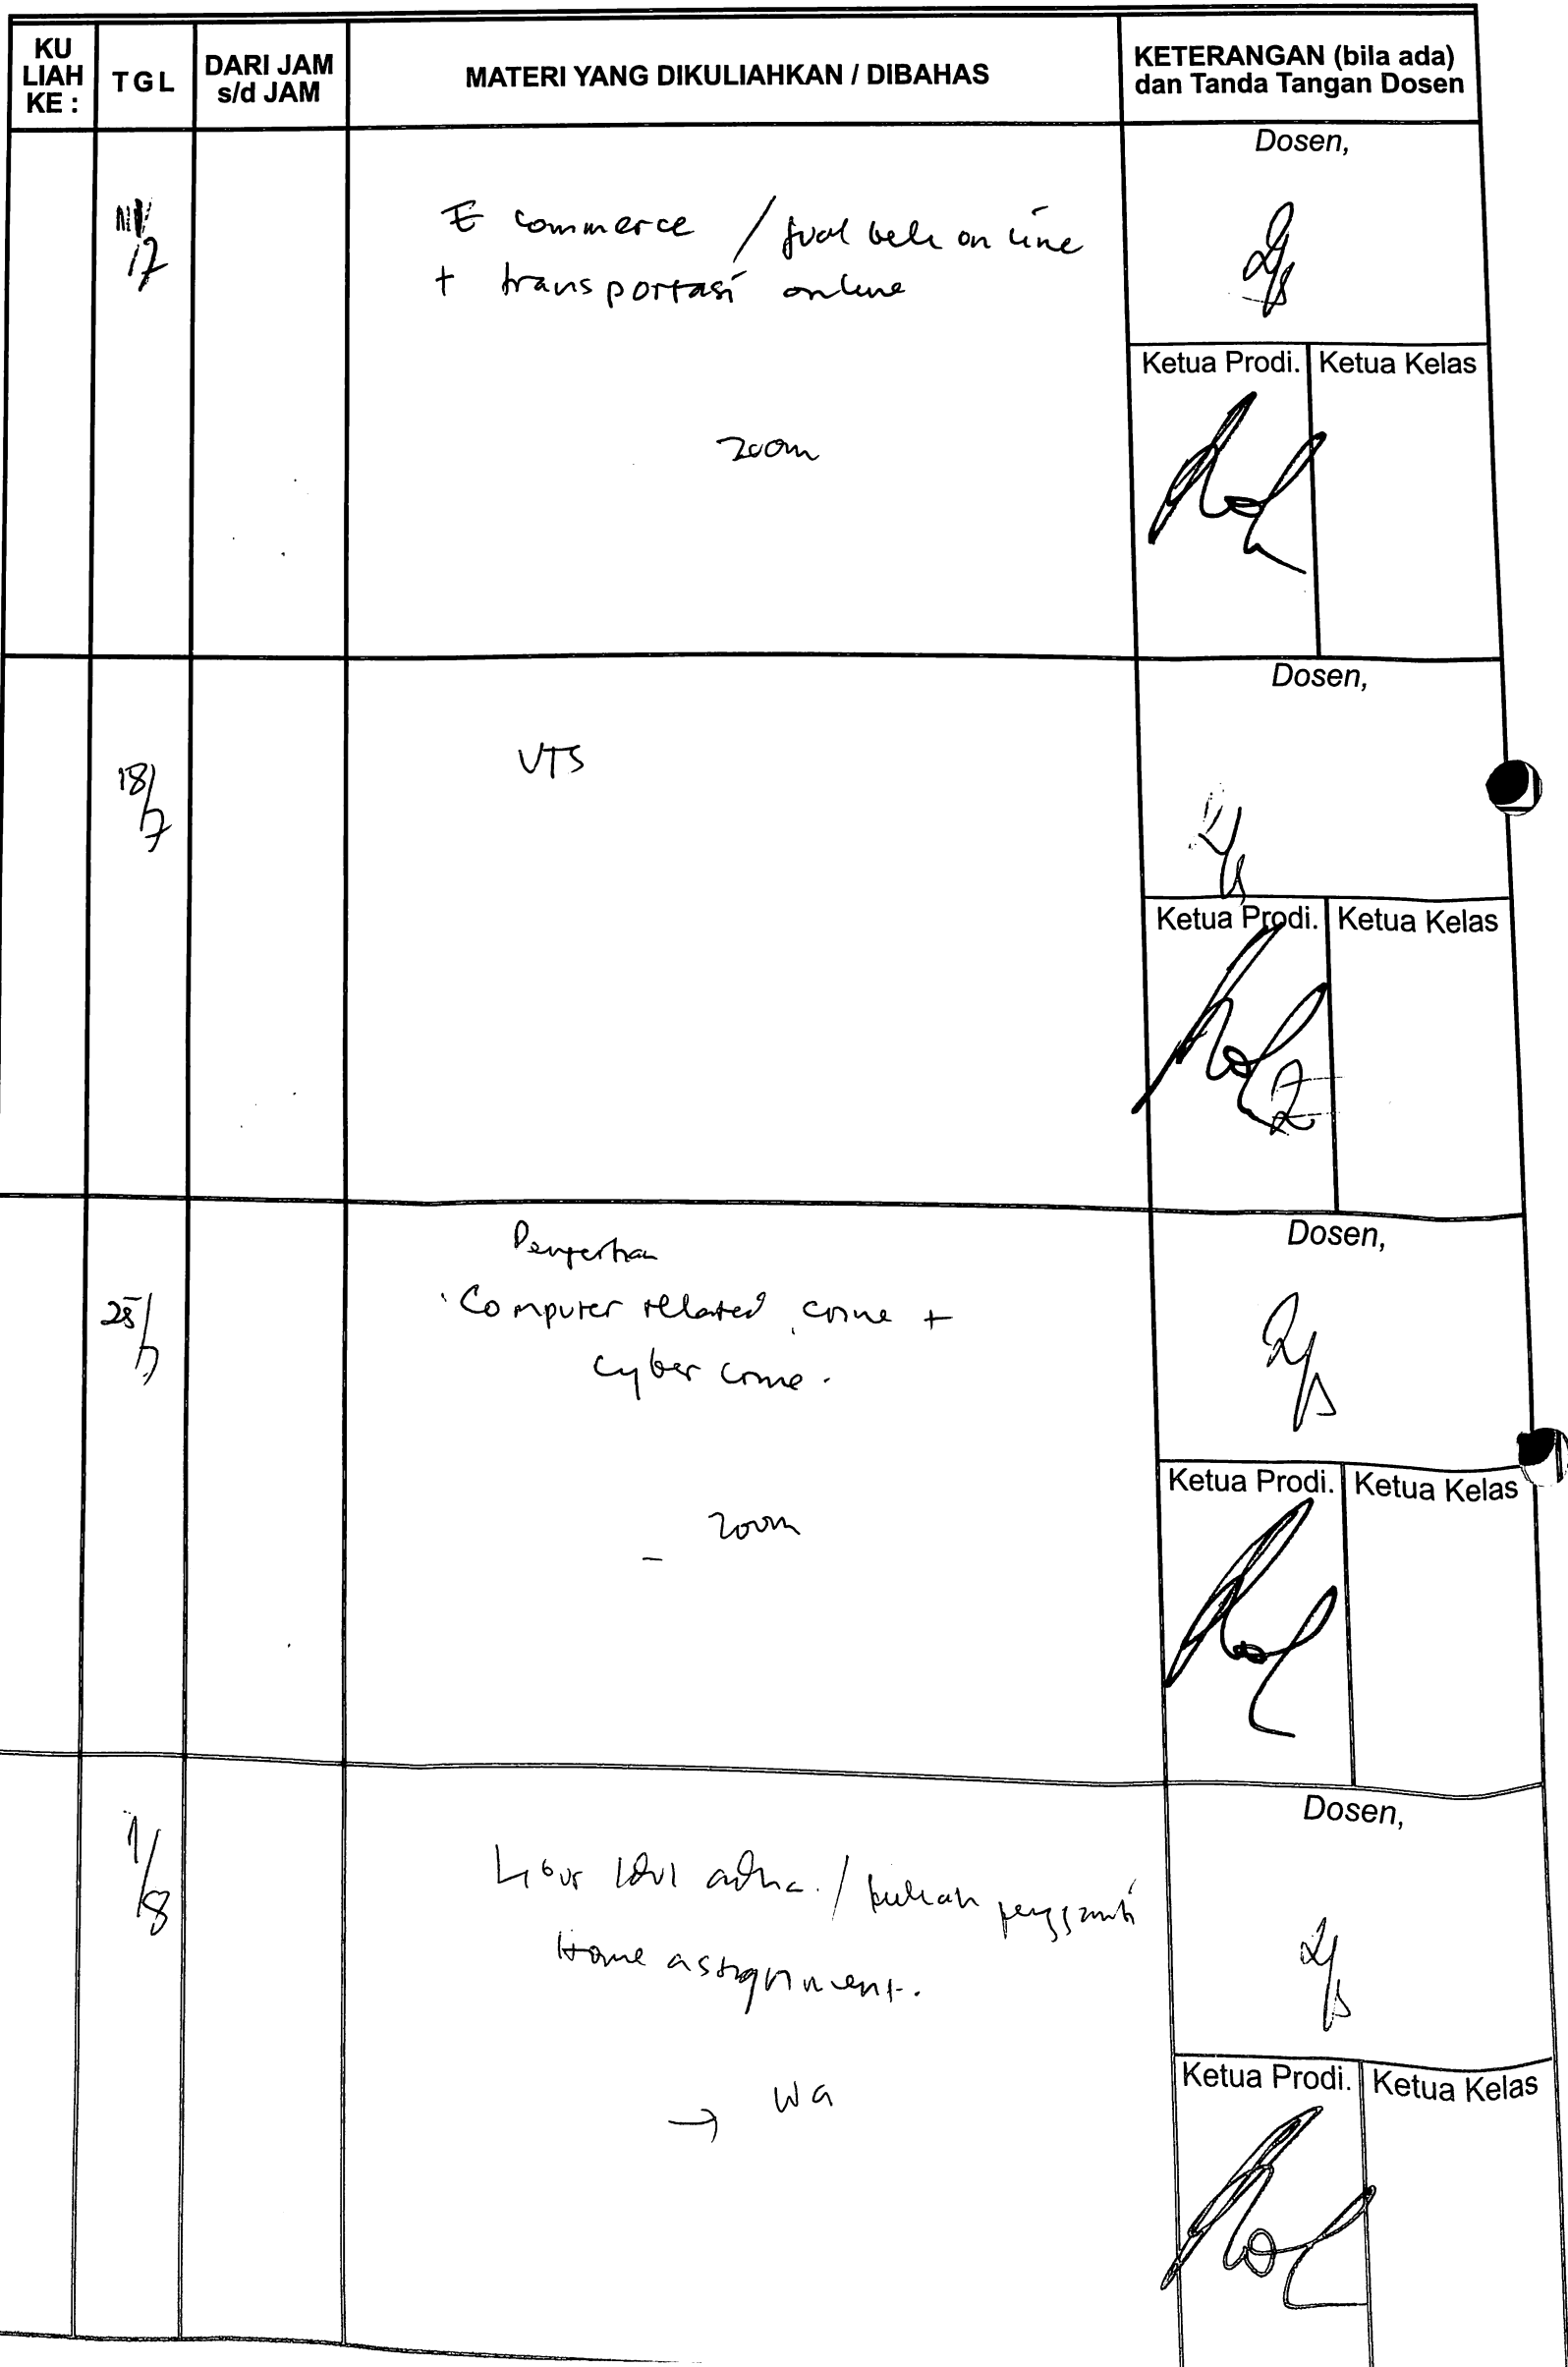 KU LIAH KE :
TGL
DARI JAM s/d JAM
MATERI YANG DIKULIAHKAN / DIBAHAS
KETERANGAN (bila ada)
dan Tanda Tangan Dosen
Dosen,
/7
E commerce / jual beli on line
+ transportasi online
Ketua Prodi.
Ketua Kelas
zoom
Dosen,
18/7
UTS
Ketua Prodi.
Ketua Kelas
Dosen,
Pengertian
25/7
Computer related crime +
cyber crime.
Ketua Prodi.
Ketua Kelas
- zoom
Dosen,
1/8
Libur Idul adha. / kuliah pengganti
Home assignment.
Ketua Prodi.
Ketua Kelas
→ WA